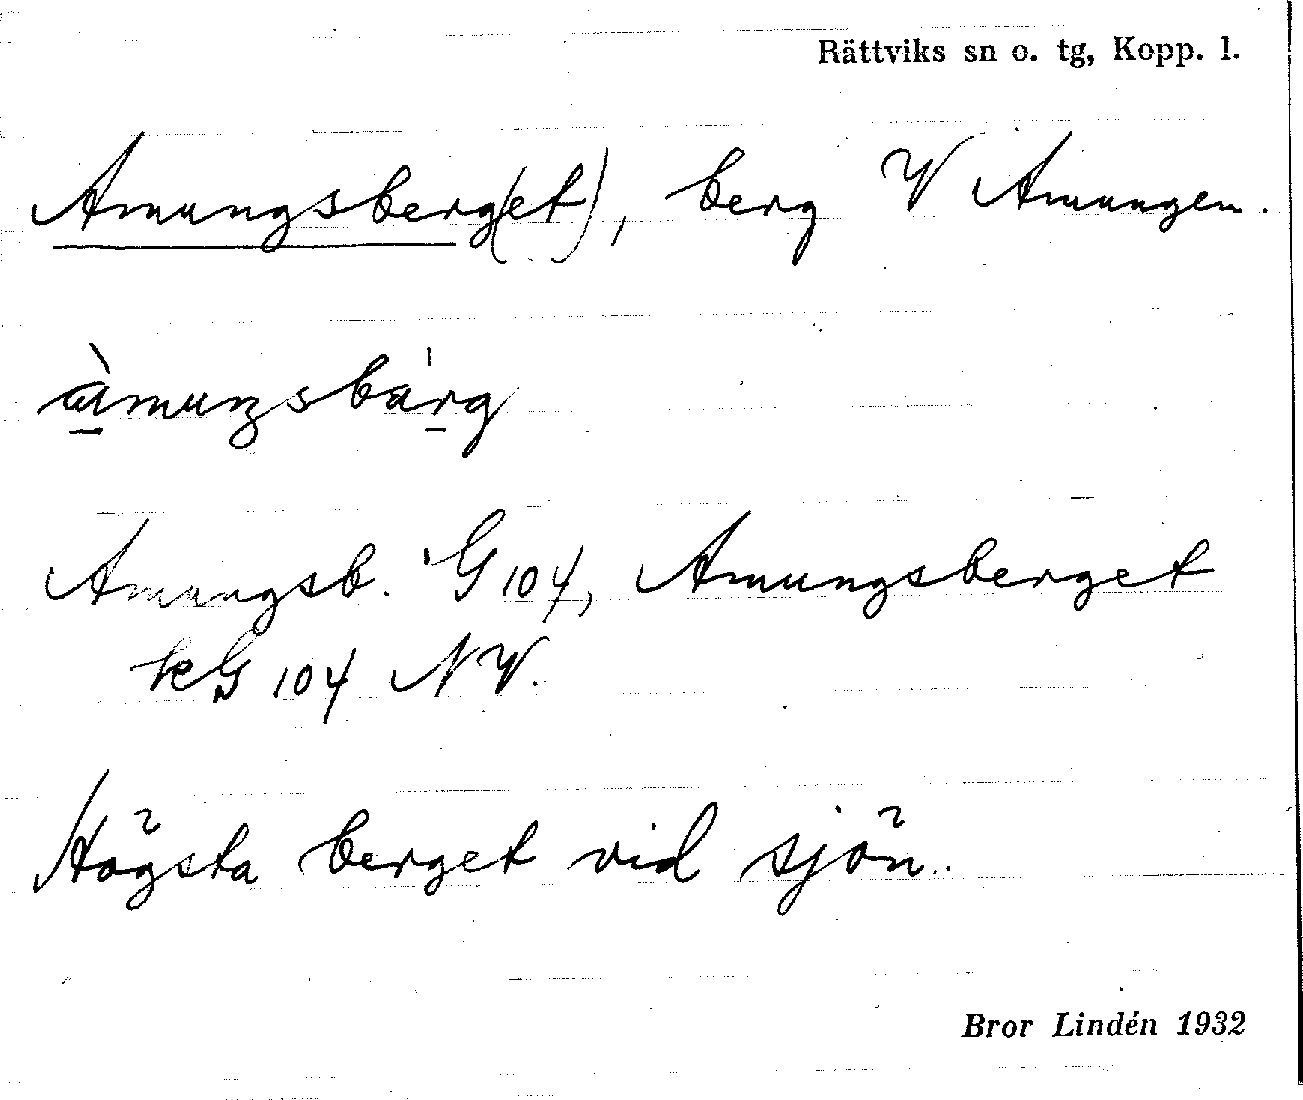 Rättviks sn o. tg, Kopp. l.
Amungsberg(et), berg V Amungen.
àmuŋsbärg
Amungsb. G 104, Amungsberget
kG 104 NV.
Högsta berget vid sjön.
Bror Lindén 1932